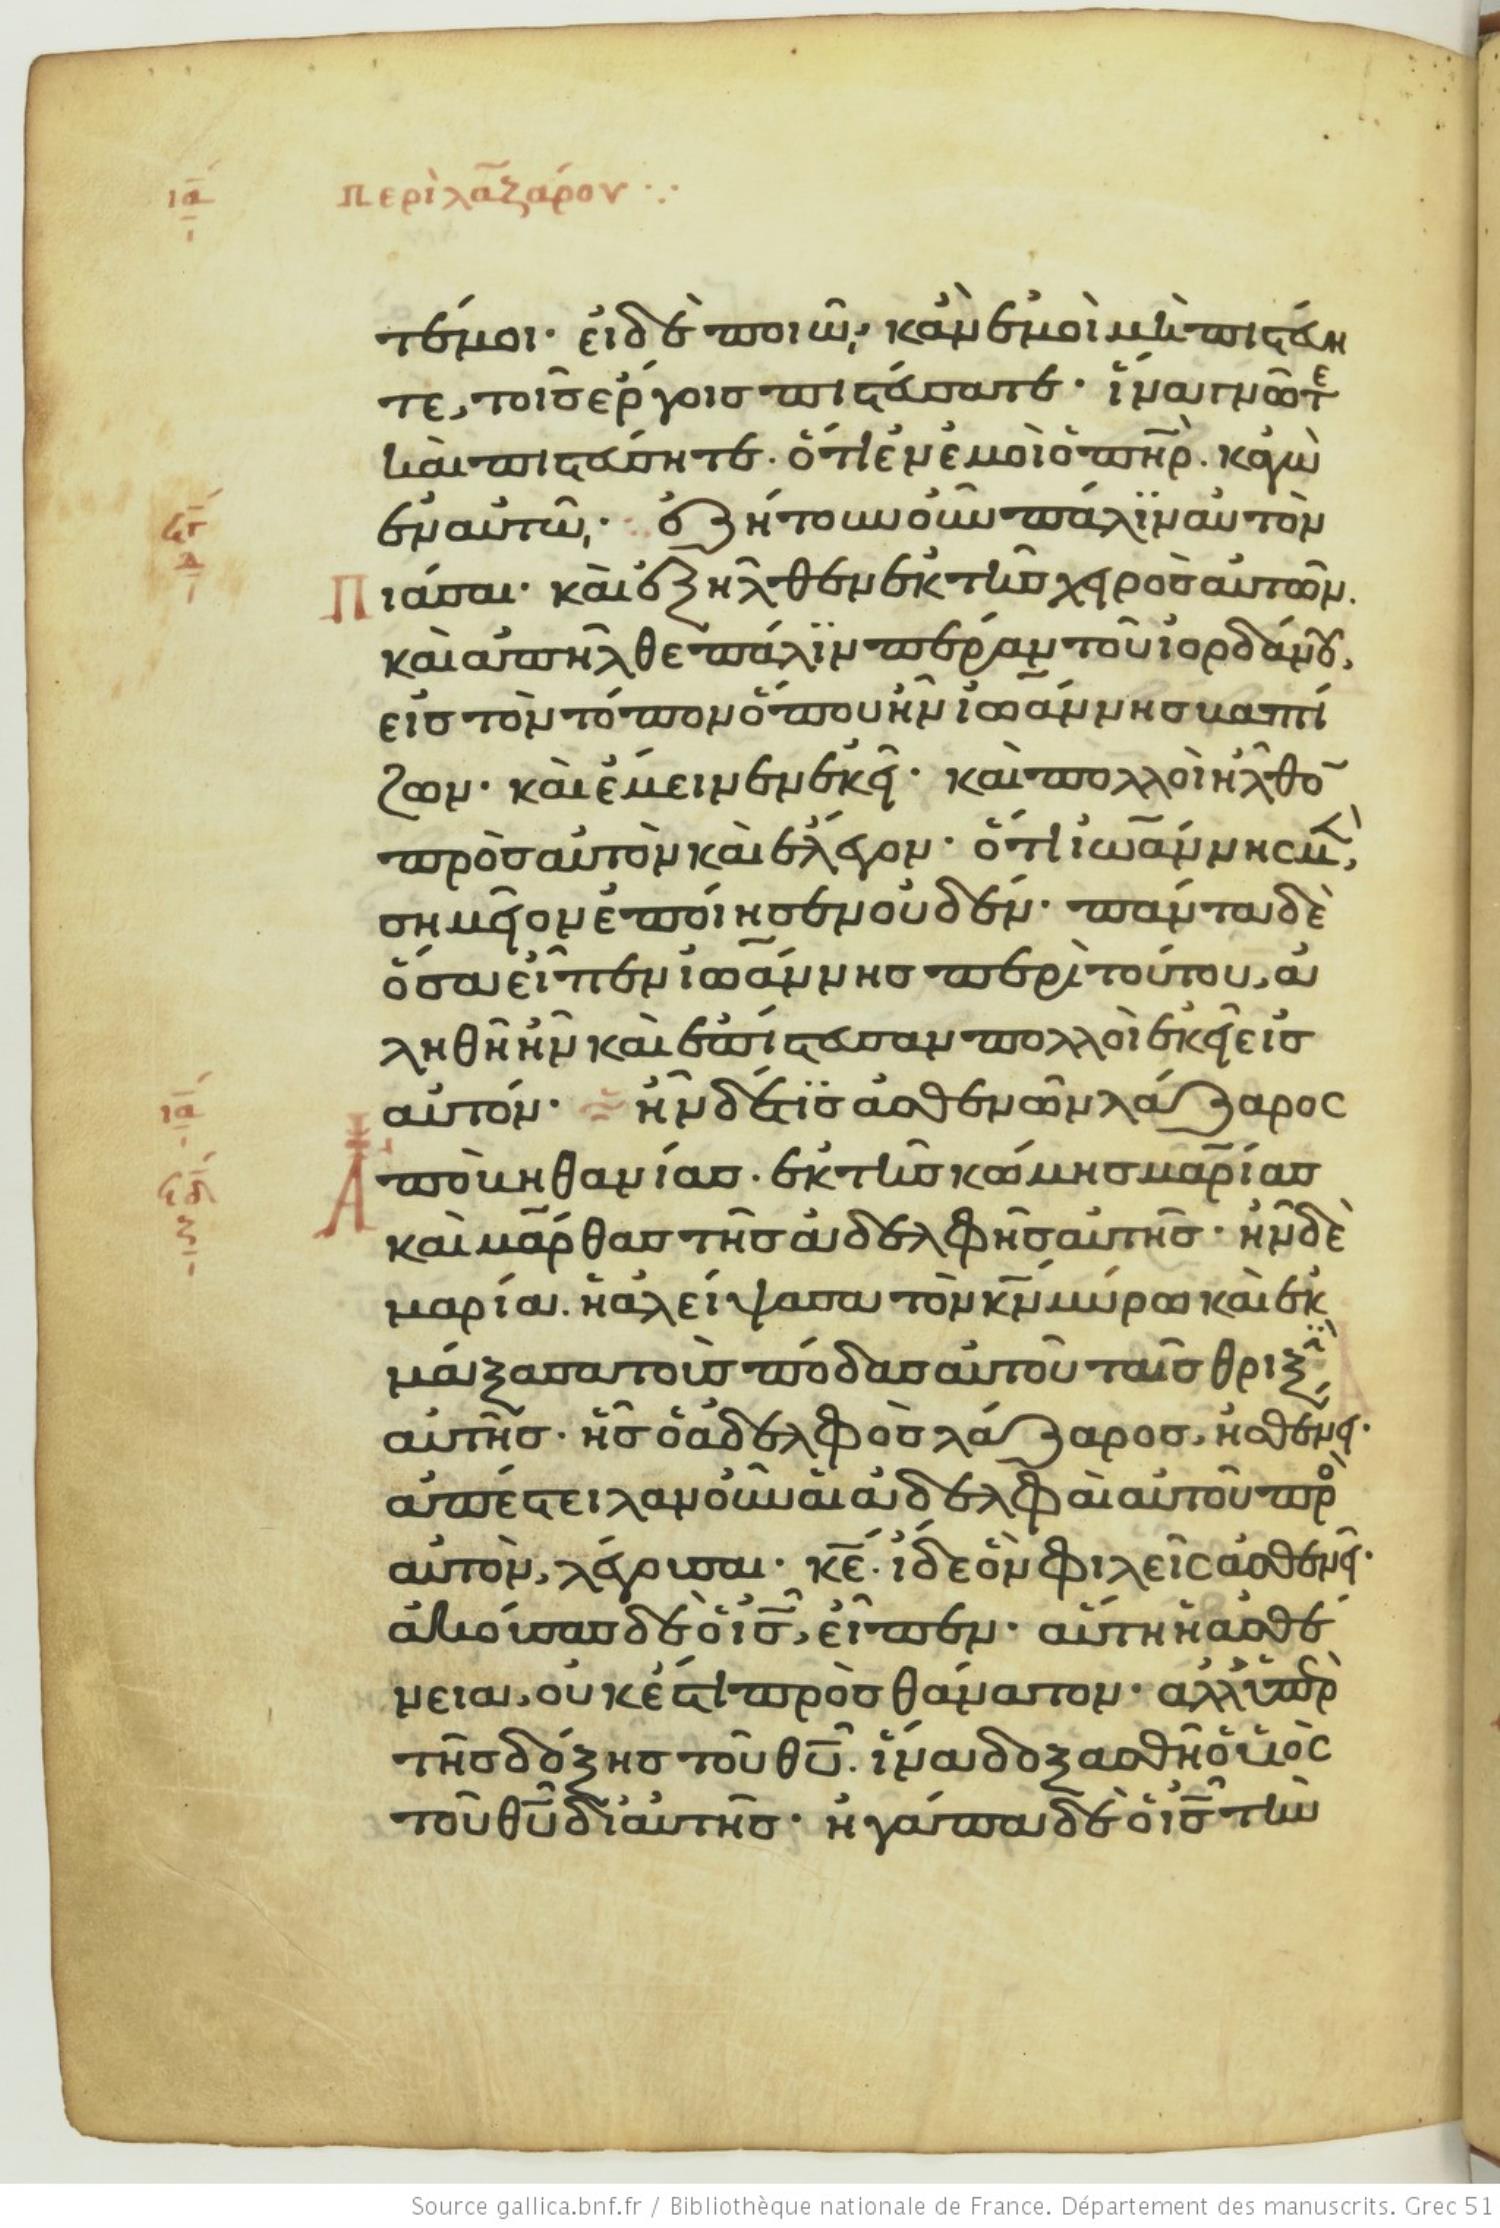 ια περὶ λαζάρου
τέ μοι· εἰ δὲ ποιῶ, κἂν ἐμοὶ μὴ πιστεύη
τε, τοῖς ἔργοις πιστεύσατε· ἵνα γνῶτε
καὶ πιστεύσητε· ὅτι ἐν ἐμοὶ ὁ πηρ. κἀγὼ
ἐν αὐτῶ· ἐζήτουν οὖν πάλϊν αὐτὸν
πιάσαι· καὶ ἐξῆλθεν ἐκ τῆς χειρὸς αὐτῶν.
καὶ ἀπῆλθε πάλϊν πέραν τοῦ ἰορδάνου,
εἰς τὸν τόπον ὅπου ἦν ἰωάννης βαπτί
ζων· καὶ ἔμεινεν ἐκεῖ· καὶ πολλοὶ ἦλθο̅
πρὸς αὐτὸν καὶ ἔλεγον· ὅτι ἰωάννης μὲ̅,
σημεῖον ἐποίησεν οὐδέν· πάντα δὲ
ὅσα εἶπεν ἰωάννης περὶ τούτου, ἀ
ληθῆ ἦν καὶ ἐπίστευσαν πολλοὶ ἐκεῖ εἰς
αὐτόν· ἦν δέ τϊς ἀσθενῶν λάζαρος
ἀπὸ βηθανίας. ἐκ τῆς κώμης μαρίας
καὶ μάρθας τῆς ἀδελφῆς αὐτῆς· ἦν δὲ
μαρία. ἡ ἀλείψασα τὸν κν μύρω καὶ ἐκ
μάξασα τοὺς πόδας αὐτοῦ ταῖς θριξὶν
αὐτῆς· ἧς ὁ ἀδελφὸς λάζαρος, ἠσθένει·
ἀπέστειλαν οὖν αἱ ἀδελφαὶ αὐτοῦ πρὸ
αὐτὸν, λέγουσαι· κε. ἴδε ὃν φιλεῖς ἀσθενεῖ·
ἀκούσας δὲ ὁ ις, εἶπεν· αὕτη ἡ ἀσθέ
νεια, οὐκ ἔστι πρὸς θάνατον· ἀλλ' ὑπὲρ
τῆς δόξης τοῦ θυ. ἵνα δοξασθῆ ὁ υἱὸς
τοῦ θυ δι' αὐτῆς· ἠγάπα δὲ ὁ ις τὴν